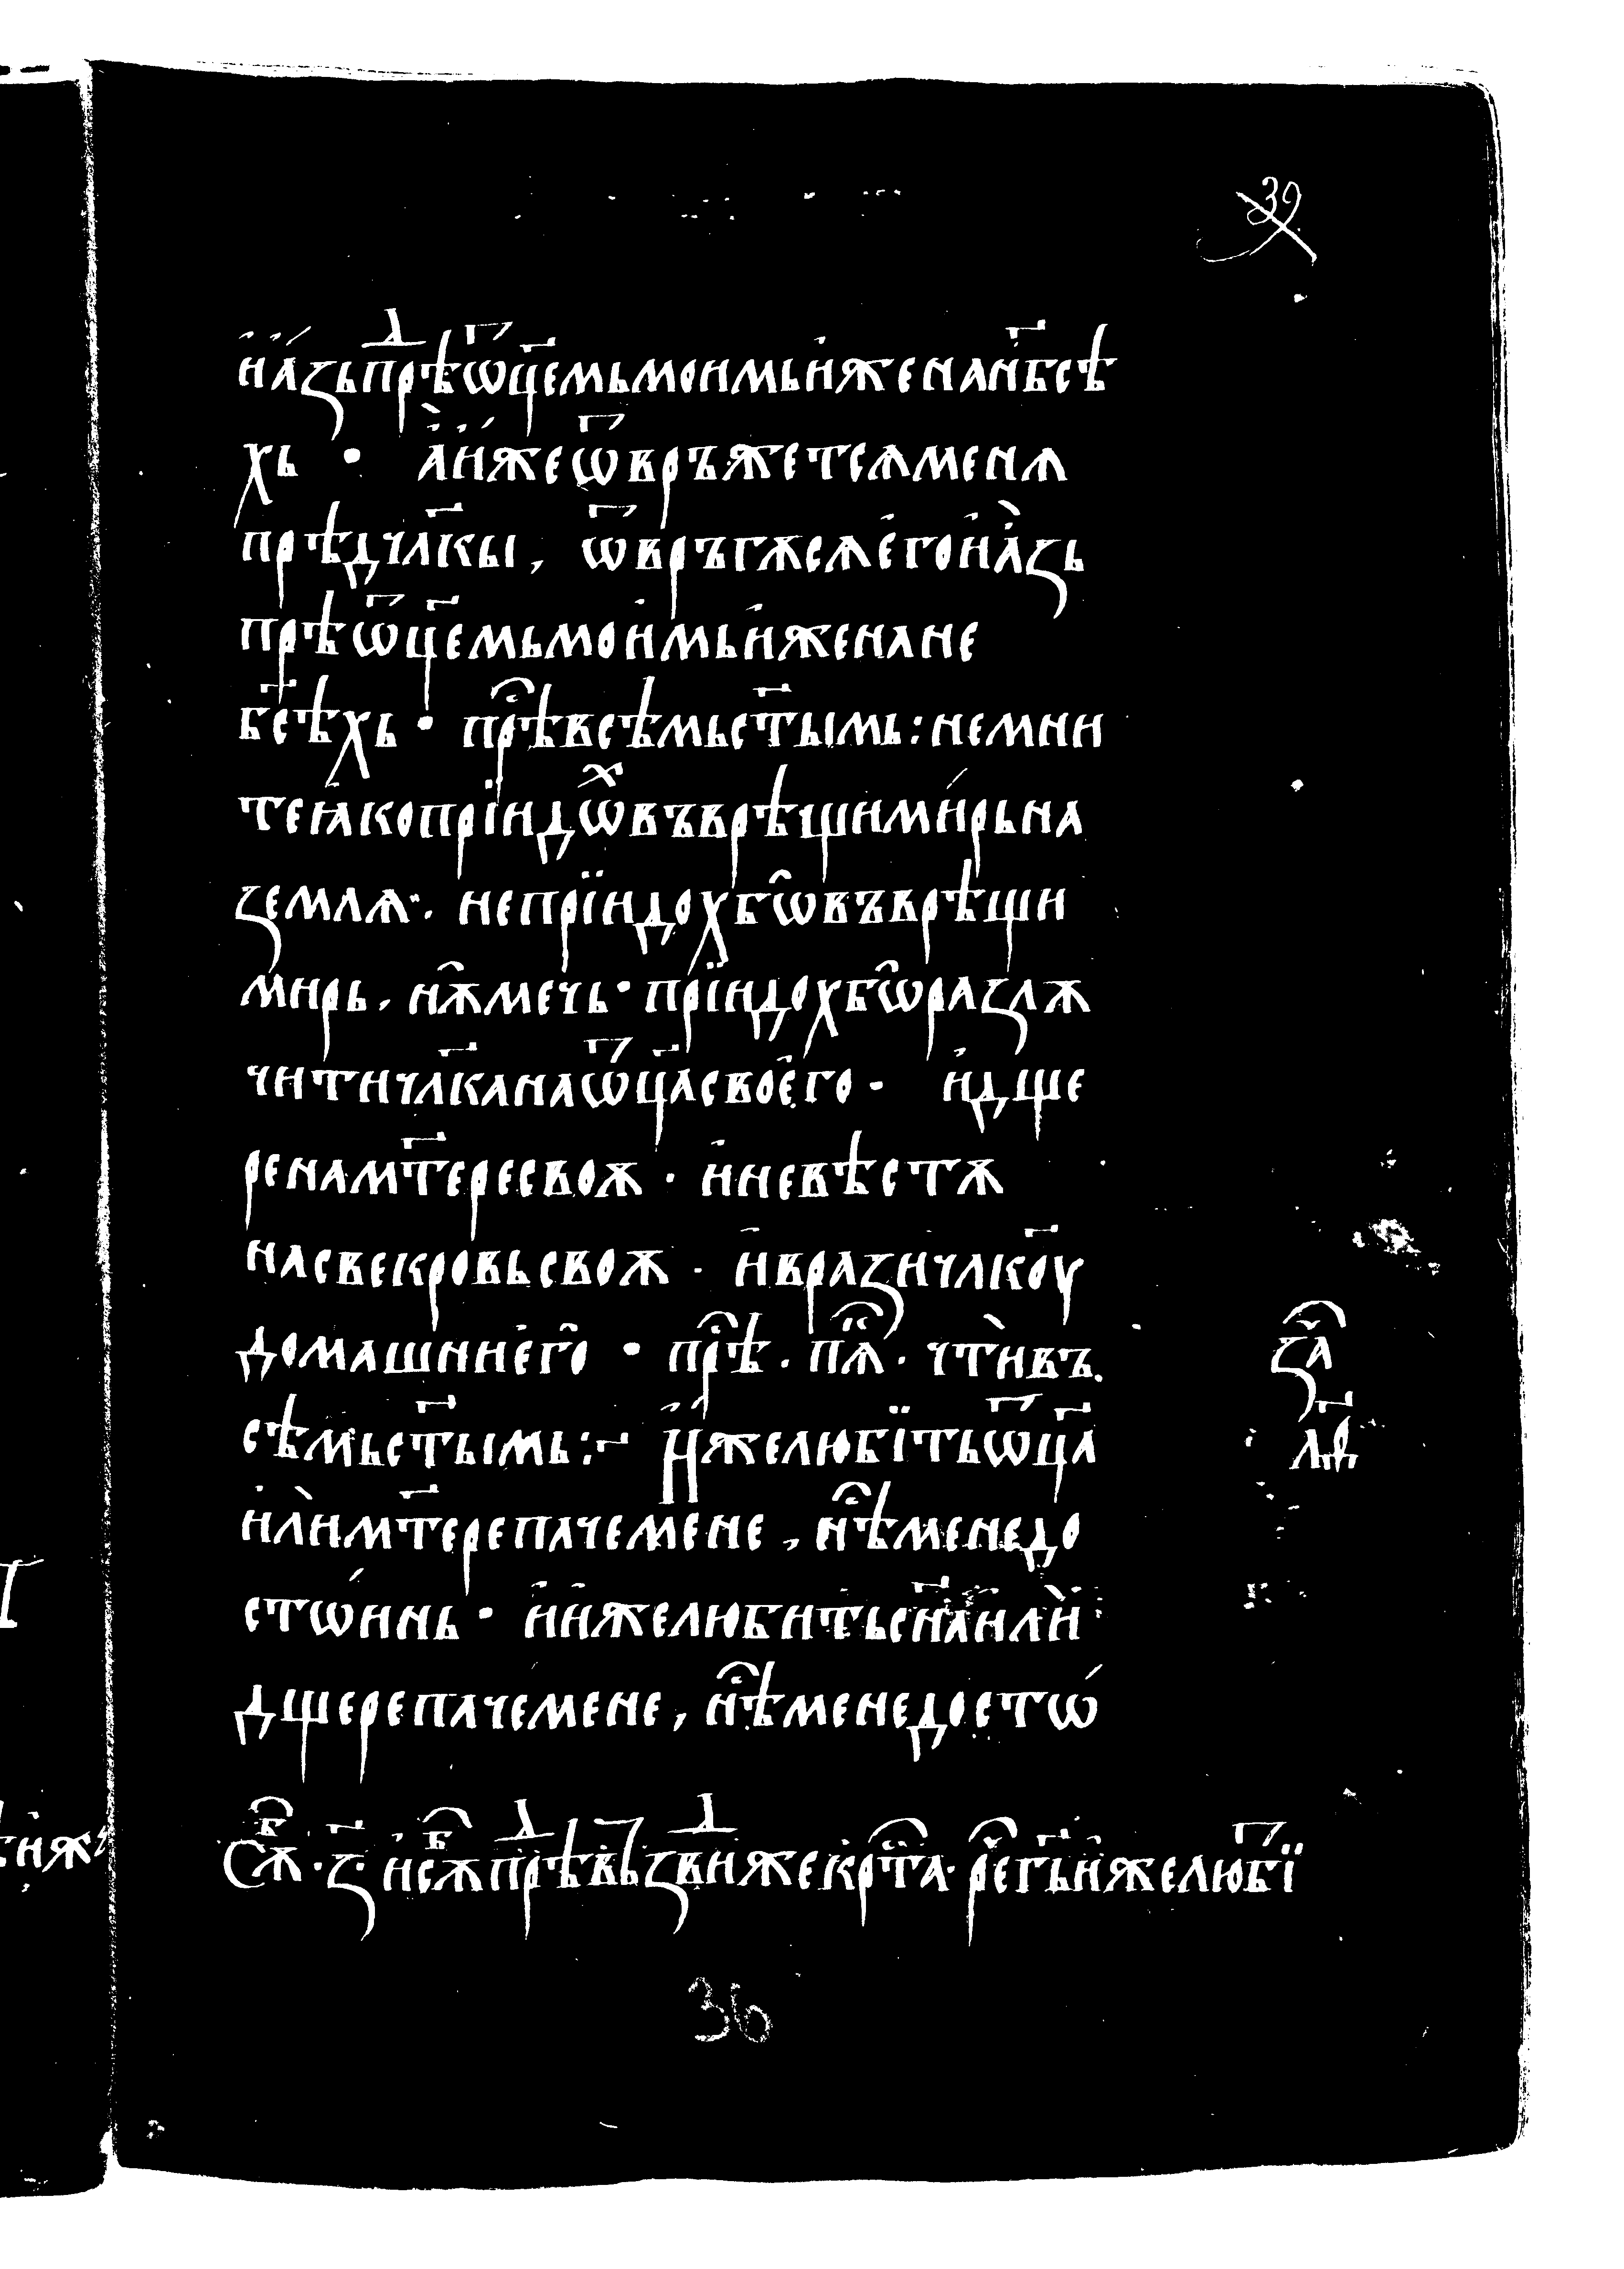 39
и҆а́зь прⷣѣ ѿц҃емь моимь и҆же на н҃бсѣ
хь · а҆̀ и҆́же ѿвръжетсѧ менѧ
прѣд чл҃кы, ѿвръгѫсѧ е҆го и҆ а҆̀зь
прѣ ѿц҃емь мои҆мь и҆же на не
б҃сѣхь · прⷭѣ всѣмь ст҃ымь : не мни
те ꙗ҆ко прїидѡⷯ въврѣщи ми́рь на
землѧ · не прїидох бѡ̑ въврѣщи
мирь, нѫ̑ мечь · прїидох бѡ̑ разлѫ
чити чл҃ка на ѿц҃а свое҆го · и҆ дще
ре на мт҃ере своѫ · и҆ невѣстѫ
на свекровь своѫ · и҆ врази чл҃коу
домашнне҆го̑ · прⷭѣ · пѧⷦ · чтѝ въ
сѣмь ст҃ымь :~ И҆́же любїть ѿц҃а
зⷱ҇а
и҆лѝ мт҃ере паче мене, нⷭѣ мене до
л҃ѳ
стѡ́инь · и҆ и҆же любить сн҃а и҆лѝ
дщере паче мене, нⷭѣ мене достѡ́
Сѫⷠ · з҃ · и҆ сѫⷠ прⷣѣ въ҃здвⷣиже крⷭта · реⷱ г҃ь и҆же любї
36